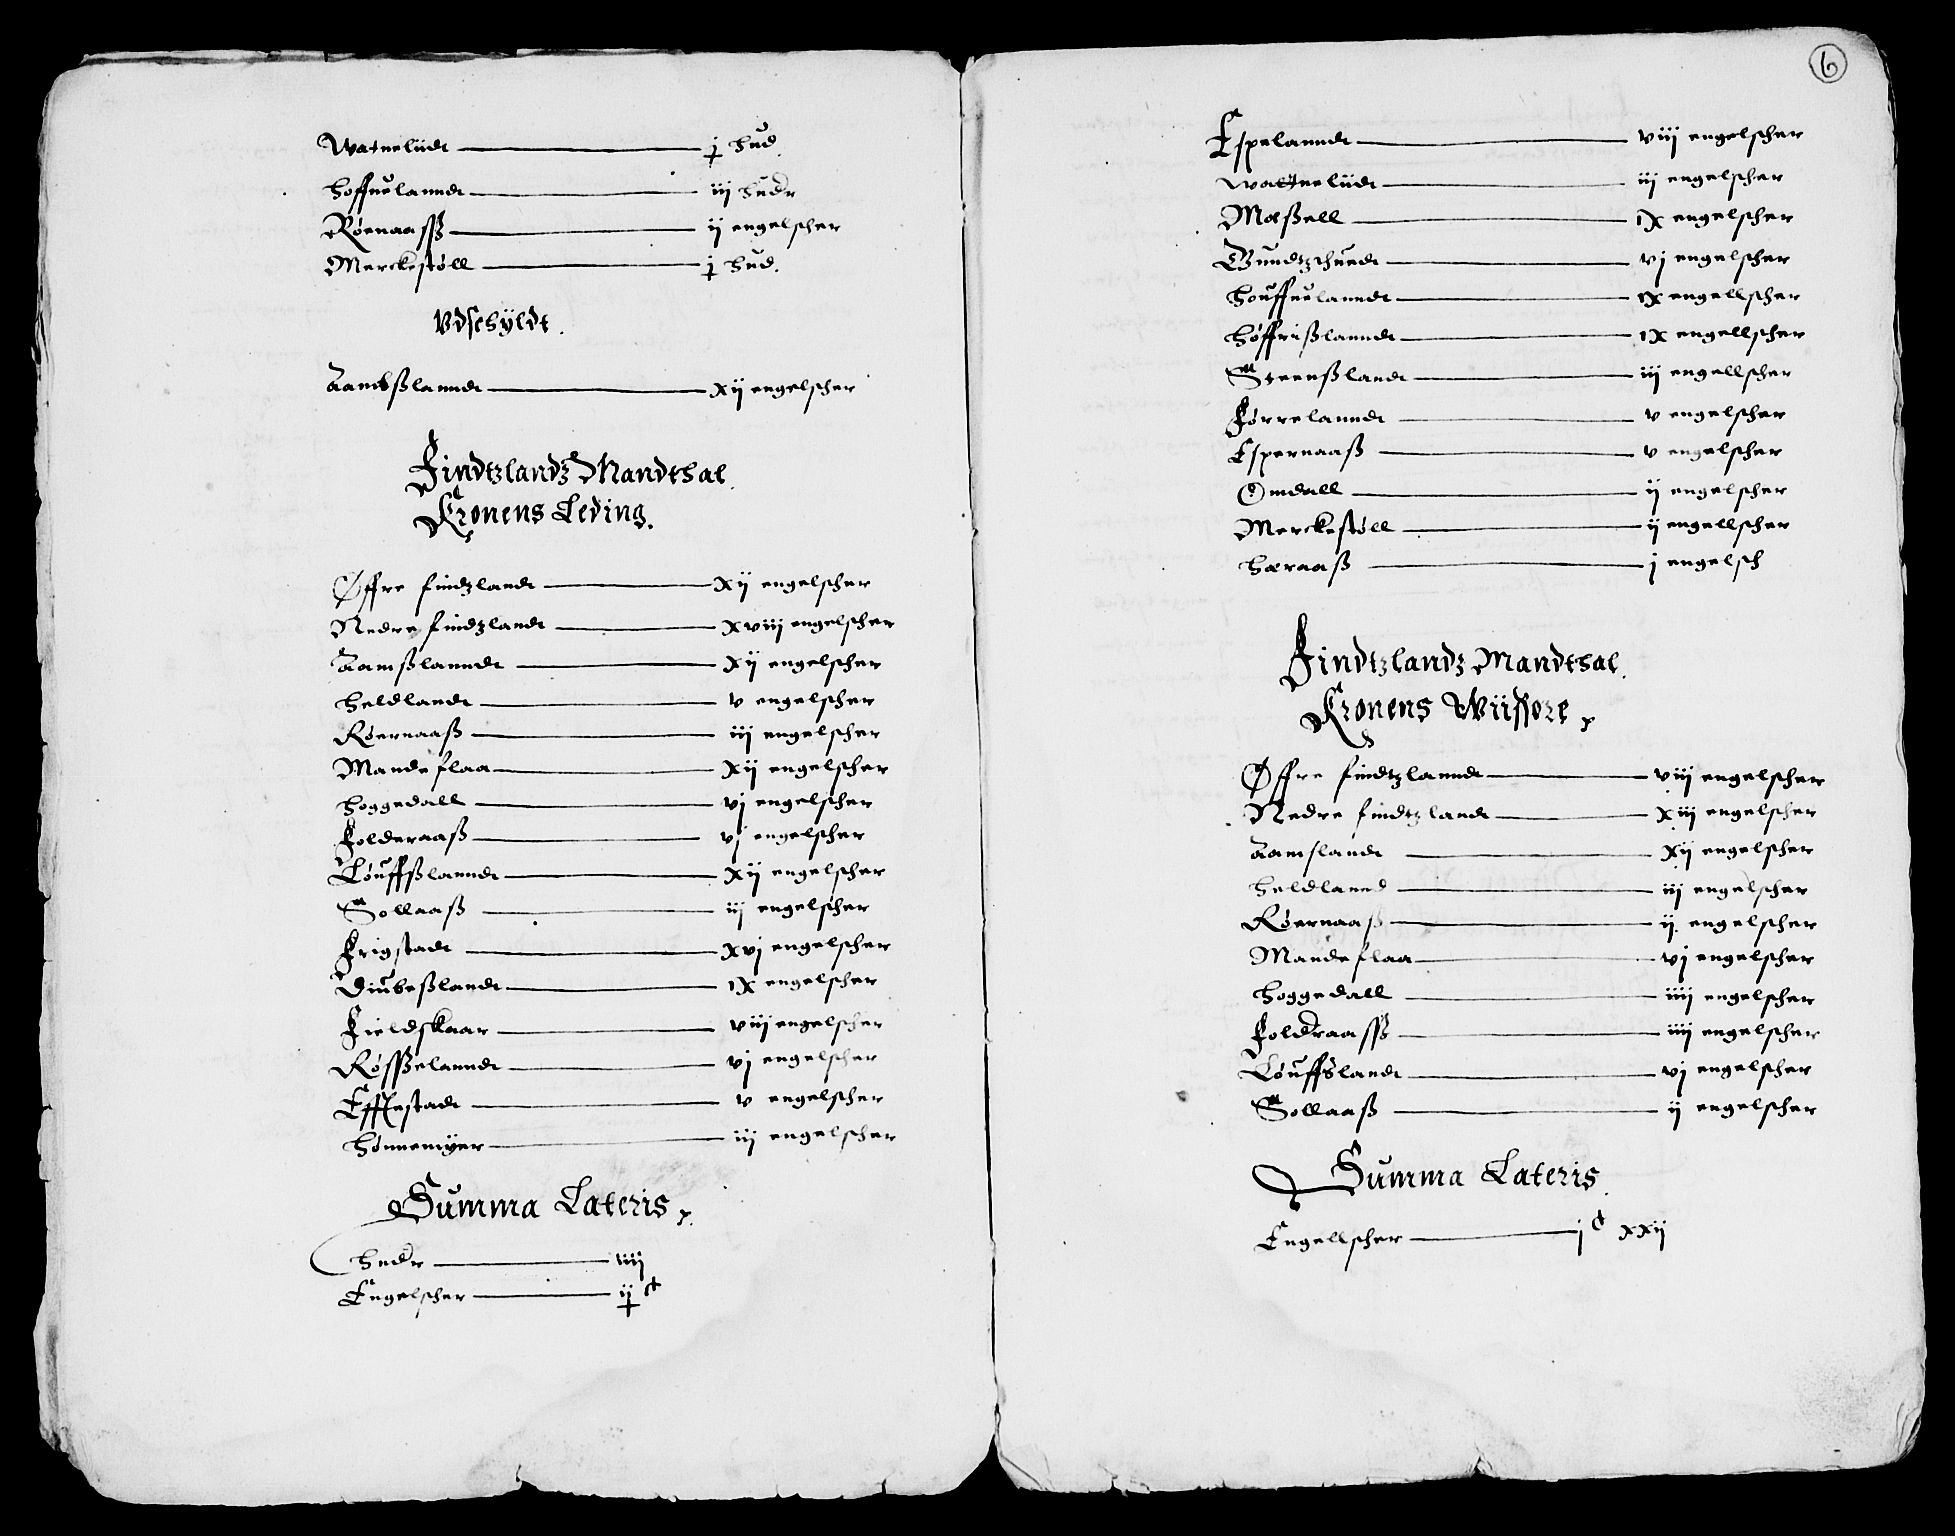 Watneliidt — j hud.
hoffuelanndt — iij hudr
Røenaasß — ij engelscher
Merckestøll — j hud.
Vdschÿldt.
Aambßlanndt — xij engelscher
Findtzlandz Mandthal.
Cronens Leding.
Øffre findzlandt — xij engelscher
Nedre findzlandt — xviij engelscher
Aamßlanndt — xij engelscher
heldlandt — v engelscher
Røernaaß — iij engelscher
Mandeflaa — xij engelscher
hoggedall — vj engelscher
Folderaaß — vj engelscher
Løuffßlanndt — xij engelscher
Sollaaß — ij engelscher
Frigstadt — xvj engelscher
Diubeßlandt — ix engelscher
Fieldskaar — viij engelscher
Røsßelanndt — vj engelscher
Efftestadt — v engelscher
hønnemyer — iij engelscher
Summa Lateris
hudr — iiij
Engelscher — ij c
6
Espelanndt — viij engelscher
Wattneliidt — iij engelscher
Mæßell — ix engelscher
Gundtzschuedt — vj engelscher
houffuelanndt — ix engellscher
høffrißlanndt — ix engellscher
Steenßlandt — iij engellscher
Førrelanndt — v engelscher
Espernaaß — v engelscher
Omdall — ij engelscher
Merckestøll — ij engellscher
hæraaß — j engelsch
Findtzlandz Mandthal.
Cronens Wiissøre
Øffre findtzlanndt — viij engelscher
Nedre findtzlandt — xiij engelscher
Aamslandt — xij engelscher
heldlannd — iij engelscher
Røernaaß — ij engelscher
Mandeflaa — vj engelscher
hoggedall — iiij engelscher
Foldraasß — iiij engelscher
Løuffslandt — vj engelscher
Sollaaß — ij engelscher
Summa Lateris.
Engellscher — j c xxij